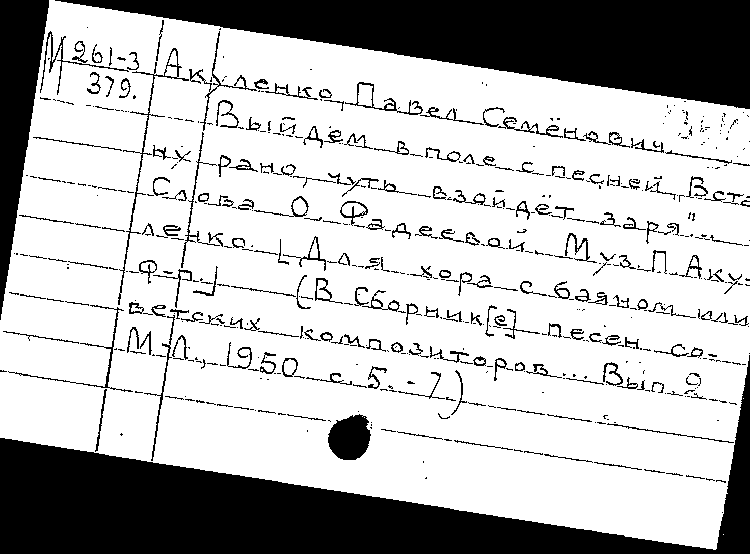 М 261-3
379.
Акуленко, Павел Семёнович.
Выйдем в поле с песней „Вста-
ну рано, чуть взойдёт заря"...
Слова О. Фадеевой. Муз. П. Аку-
ленко. [Для хора с баяном или
ф-п.] (В Сборник[е] песен со-
ветских композиторов... Вып. 2
М-Л., 1950 с. 5.-7.)